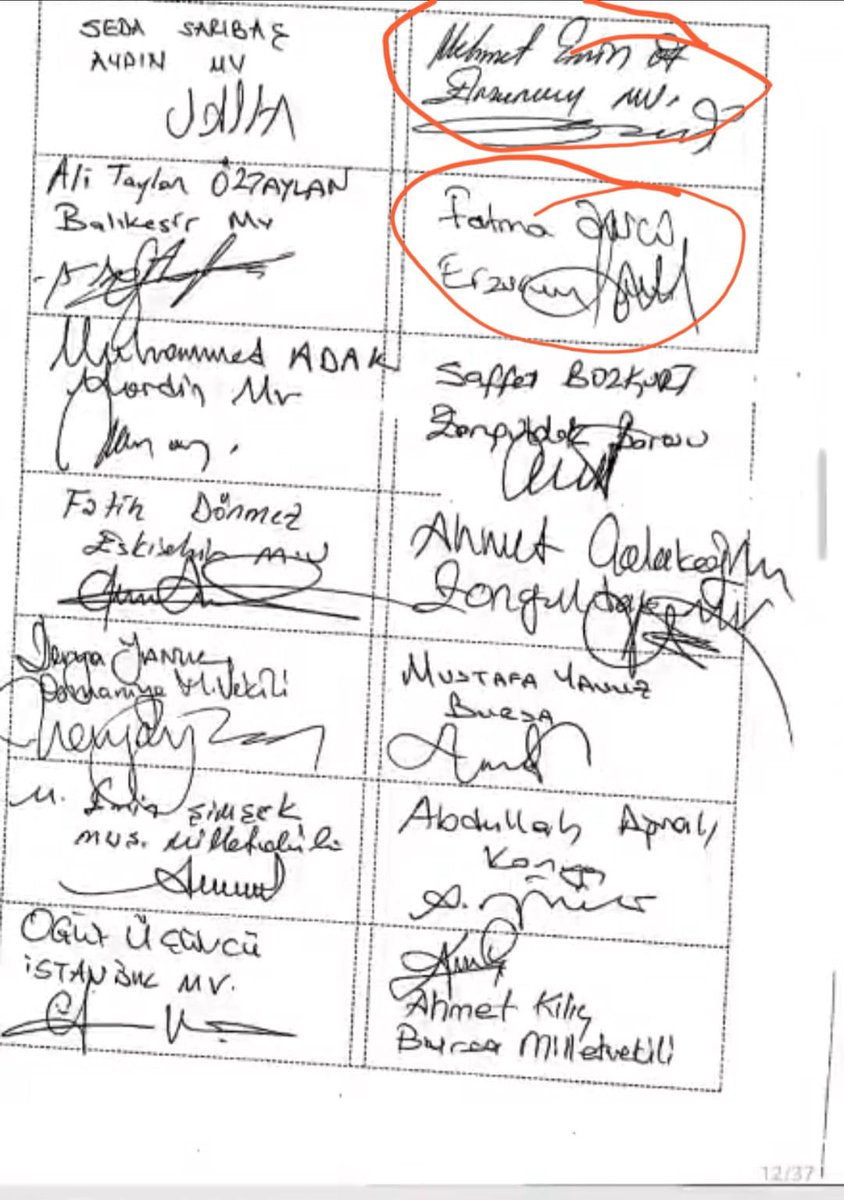 SEDA SARIBAŞ
AYDIN MV
Mehmet Emin Öz
Erzurum MV.
Ali Taylan ÖZTAYLAN
Balıkesir Mv
Fatma Öncü
Erzurum
Muhammed ADAK
Mardin Mv
Saffet BOZKURT
Zonguldak
Fatih Dönmez
Eskişehir MV
Ahmet Çolakoğlu
Zonguldak Mv
Derya YANIK
Osmaniye Milvekili
MUSTAFA YAVUZ
BURSA
M. Emin ŞİMŞEK
MUŞ. Milletvekili
Abdullah
Konya
OĞUZ ÜÇÜNCÜ
İSTANBUL MV.
Ahmet Kılıç
Bursa Milletvekili
12/37